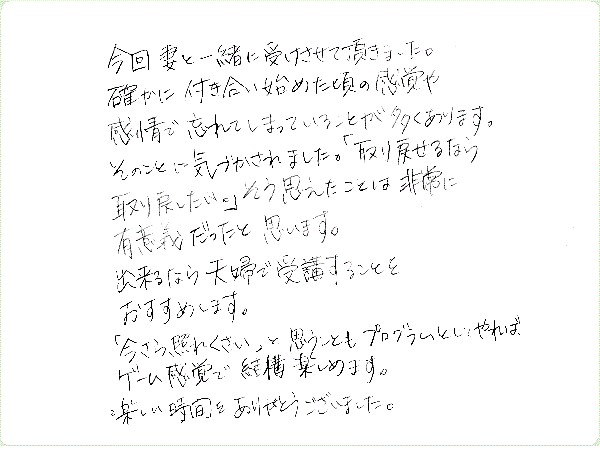 今回 妻と一緒に受けさせて頂きました。
確かに 付き合い始めた頃の感覚や
感情で忘れてしまっていることが多くあります。
そのことに気づかされました。「取り戻せるなら
取り戻したい。」そう思えたことは非常に
有意義だったと思います。
出来るなら夫婦で受講することを
おすすめします。
「今さら、照れくさい」と思うこともプログラムとしてやれば
ゲーム感覚で結構楽しめます。
楽しい時間をありがとうございました。